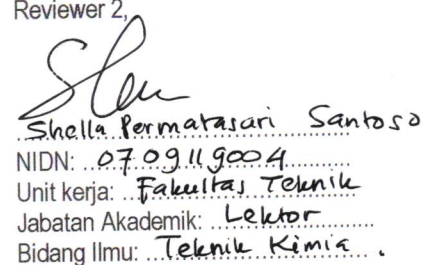 Reviewer 2,
Shella Permatasari Santoso
NIDN: 0709119004
Unit kerja: Fakultas Teknik
Jabatan Akademik: Lektor
Bidang Ilmu: Teknik Kimia.